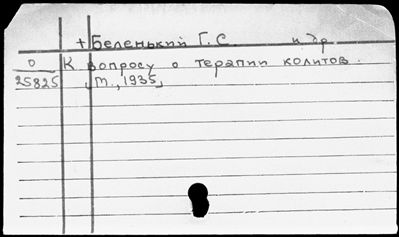 + Беленький Г.С. и др.
О К вопросу о терапии колитов.
25825 М., 1935,